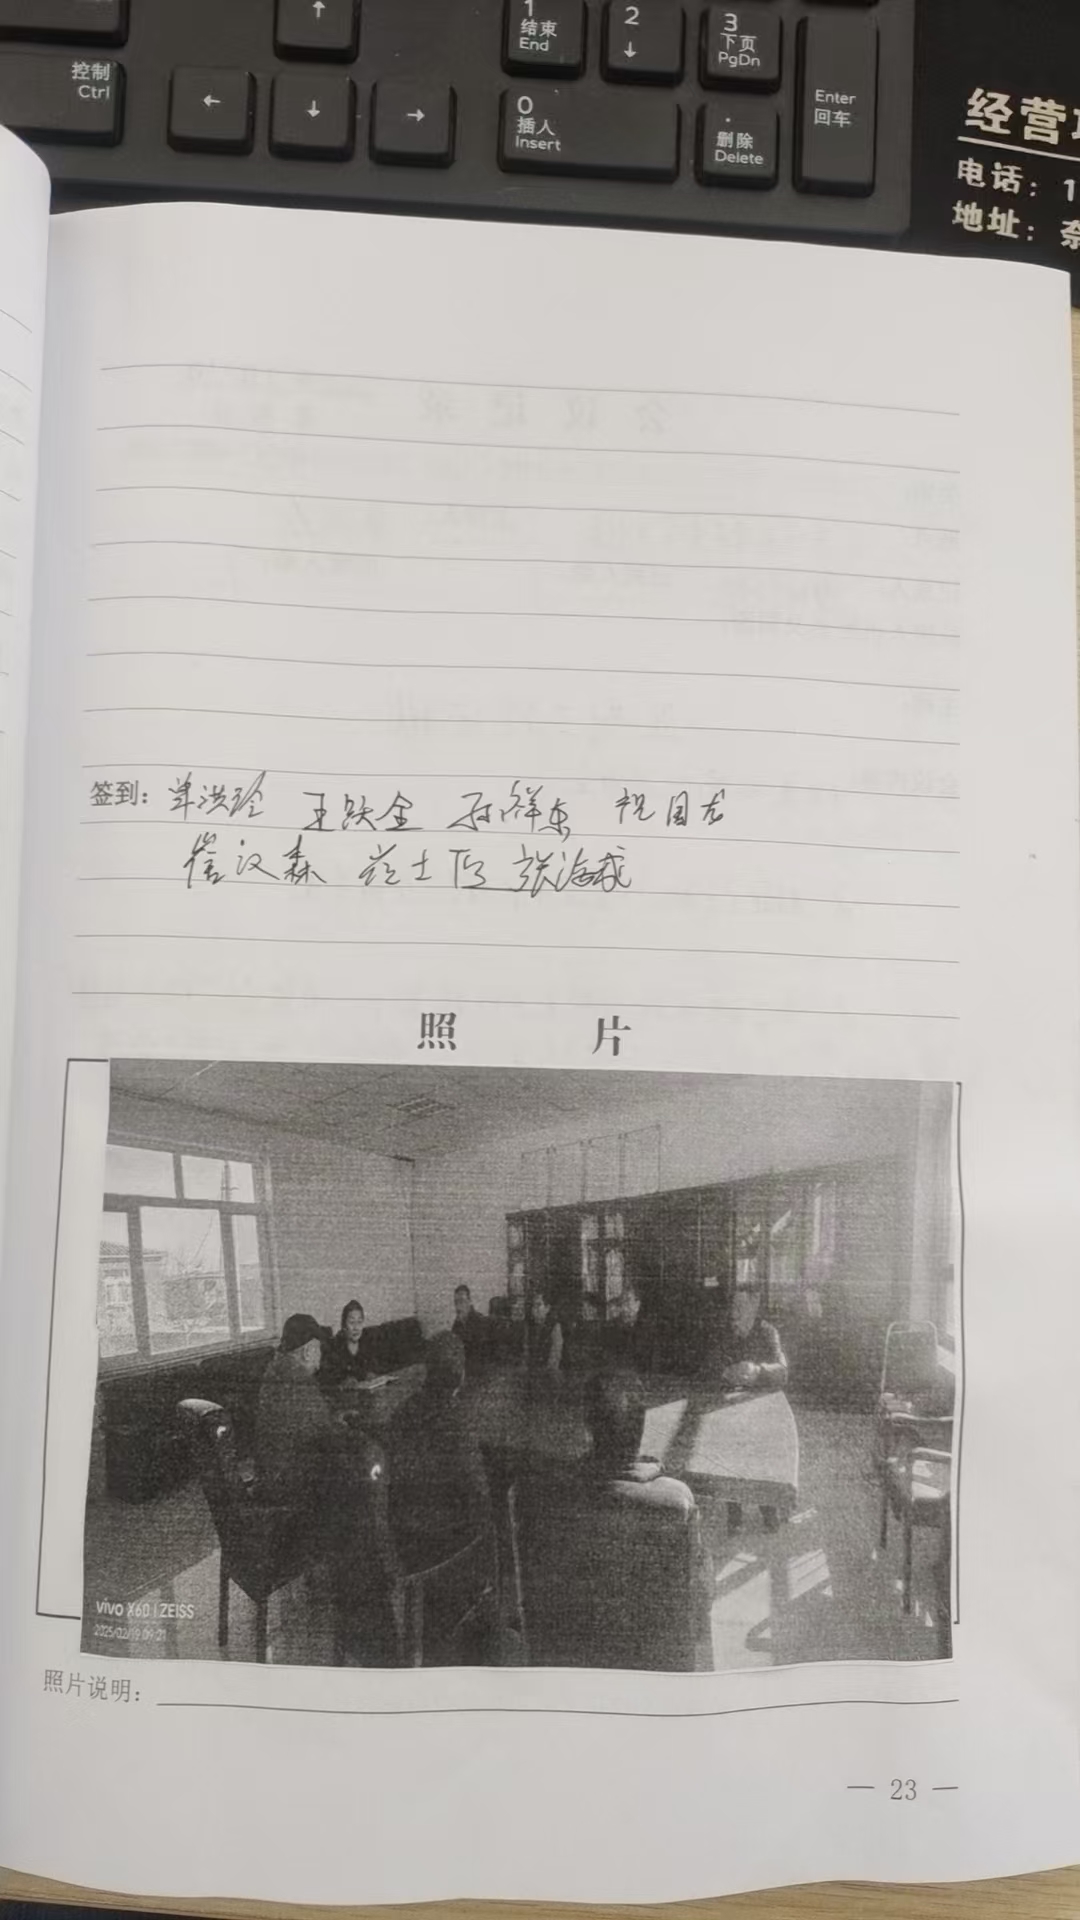 1
结束
End
2
↓
3
下页
PgDn
控制
Ctrl
↑
←
↓
→
0
插入
Insert
.
删除
Delete
Enter
回车
经营
电话：1
地址：奈
会议记录
签到：单洪玲 王跃全 孙祥东 祝国龙
崔汉森 张海成
照 片
vivo X60 | ZEISS
2025/02/19 09:21
照片说明：
— 23 —